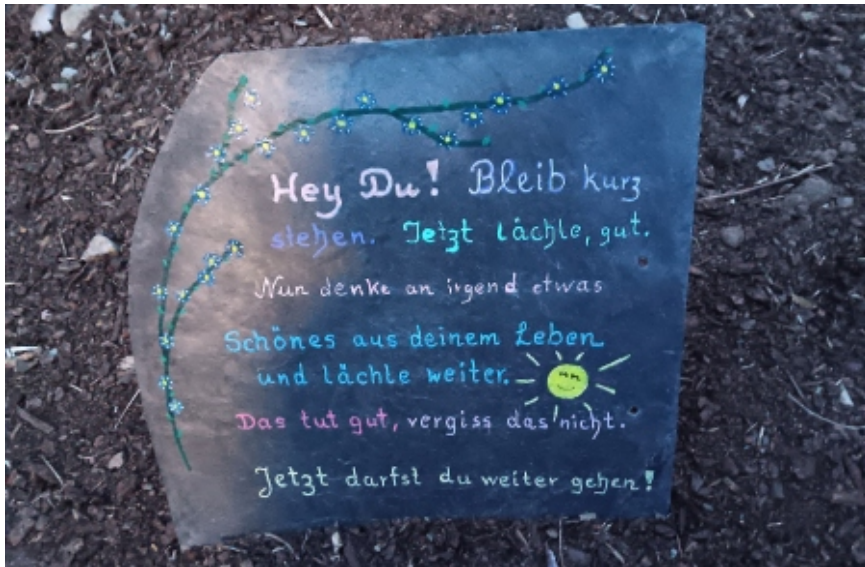 Hey Du! Bleib kurz
stehen. Jetzt lächle, gut.
Nun denke an irgend etwas
Schönes aus deinem Leben
und lächle weiter.
Das tut gut, vergiss das nicht.
Jetzt darfst du weiter gehen!